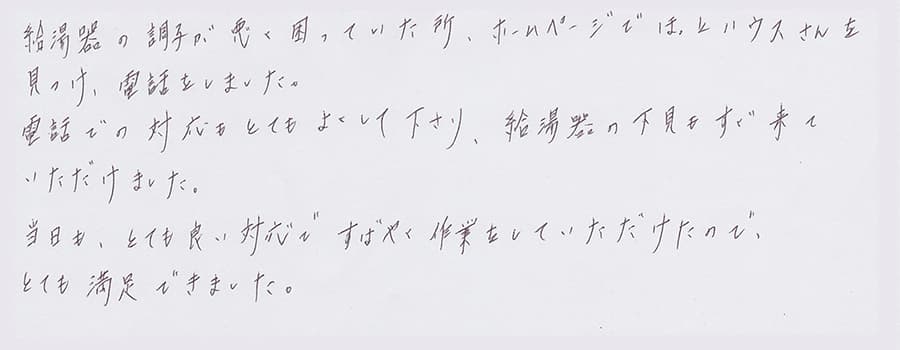 給湯器の調子が悪く困っていた所、ホームページでほっとハウスさんを
見つけ、電話をしました。
電話での対応もとてもよくして下さり、給湯器の下見もすぐ来て
いただけました。
当日も、とても良い対応ですばやく作業をしていただけたので、
とても満足できました。